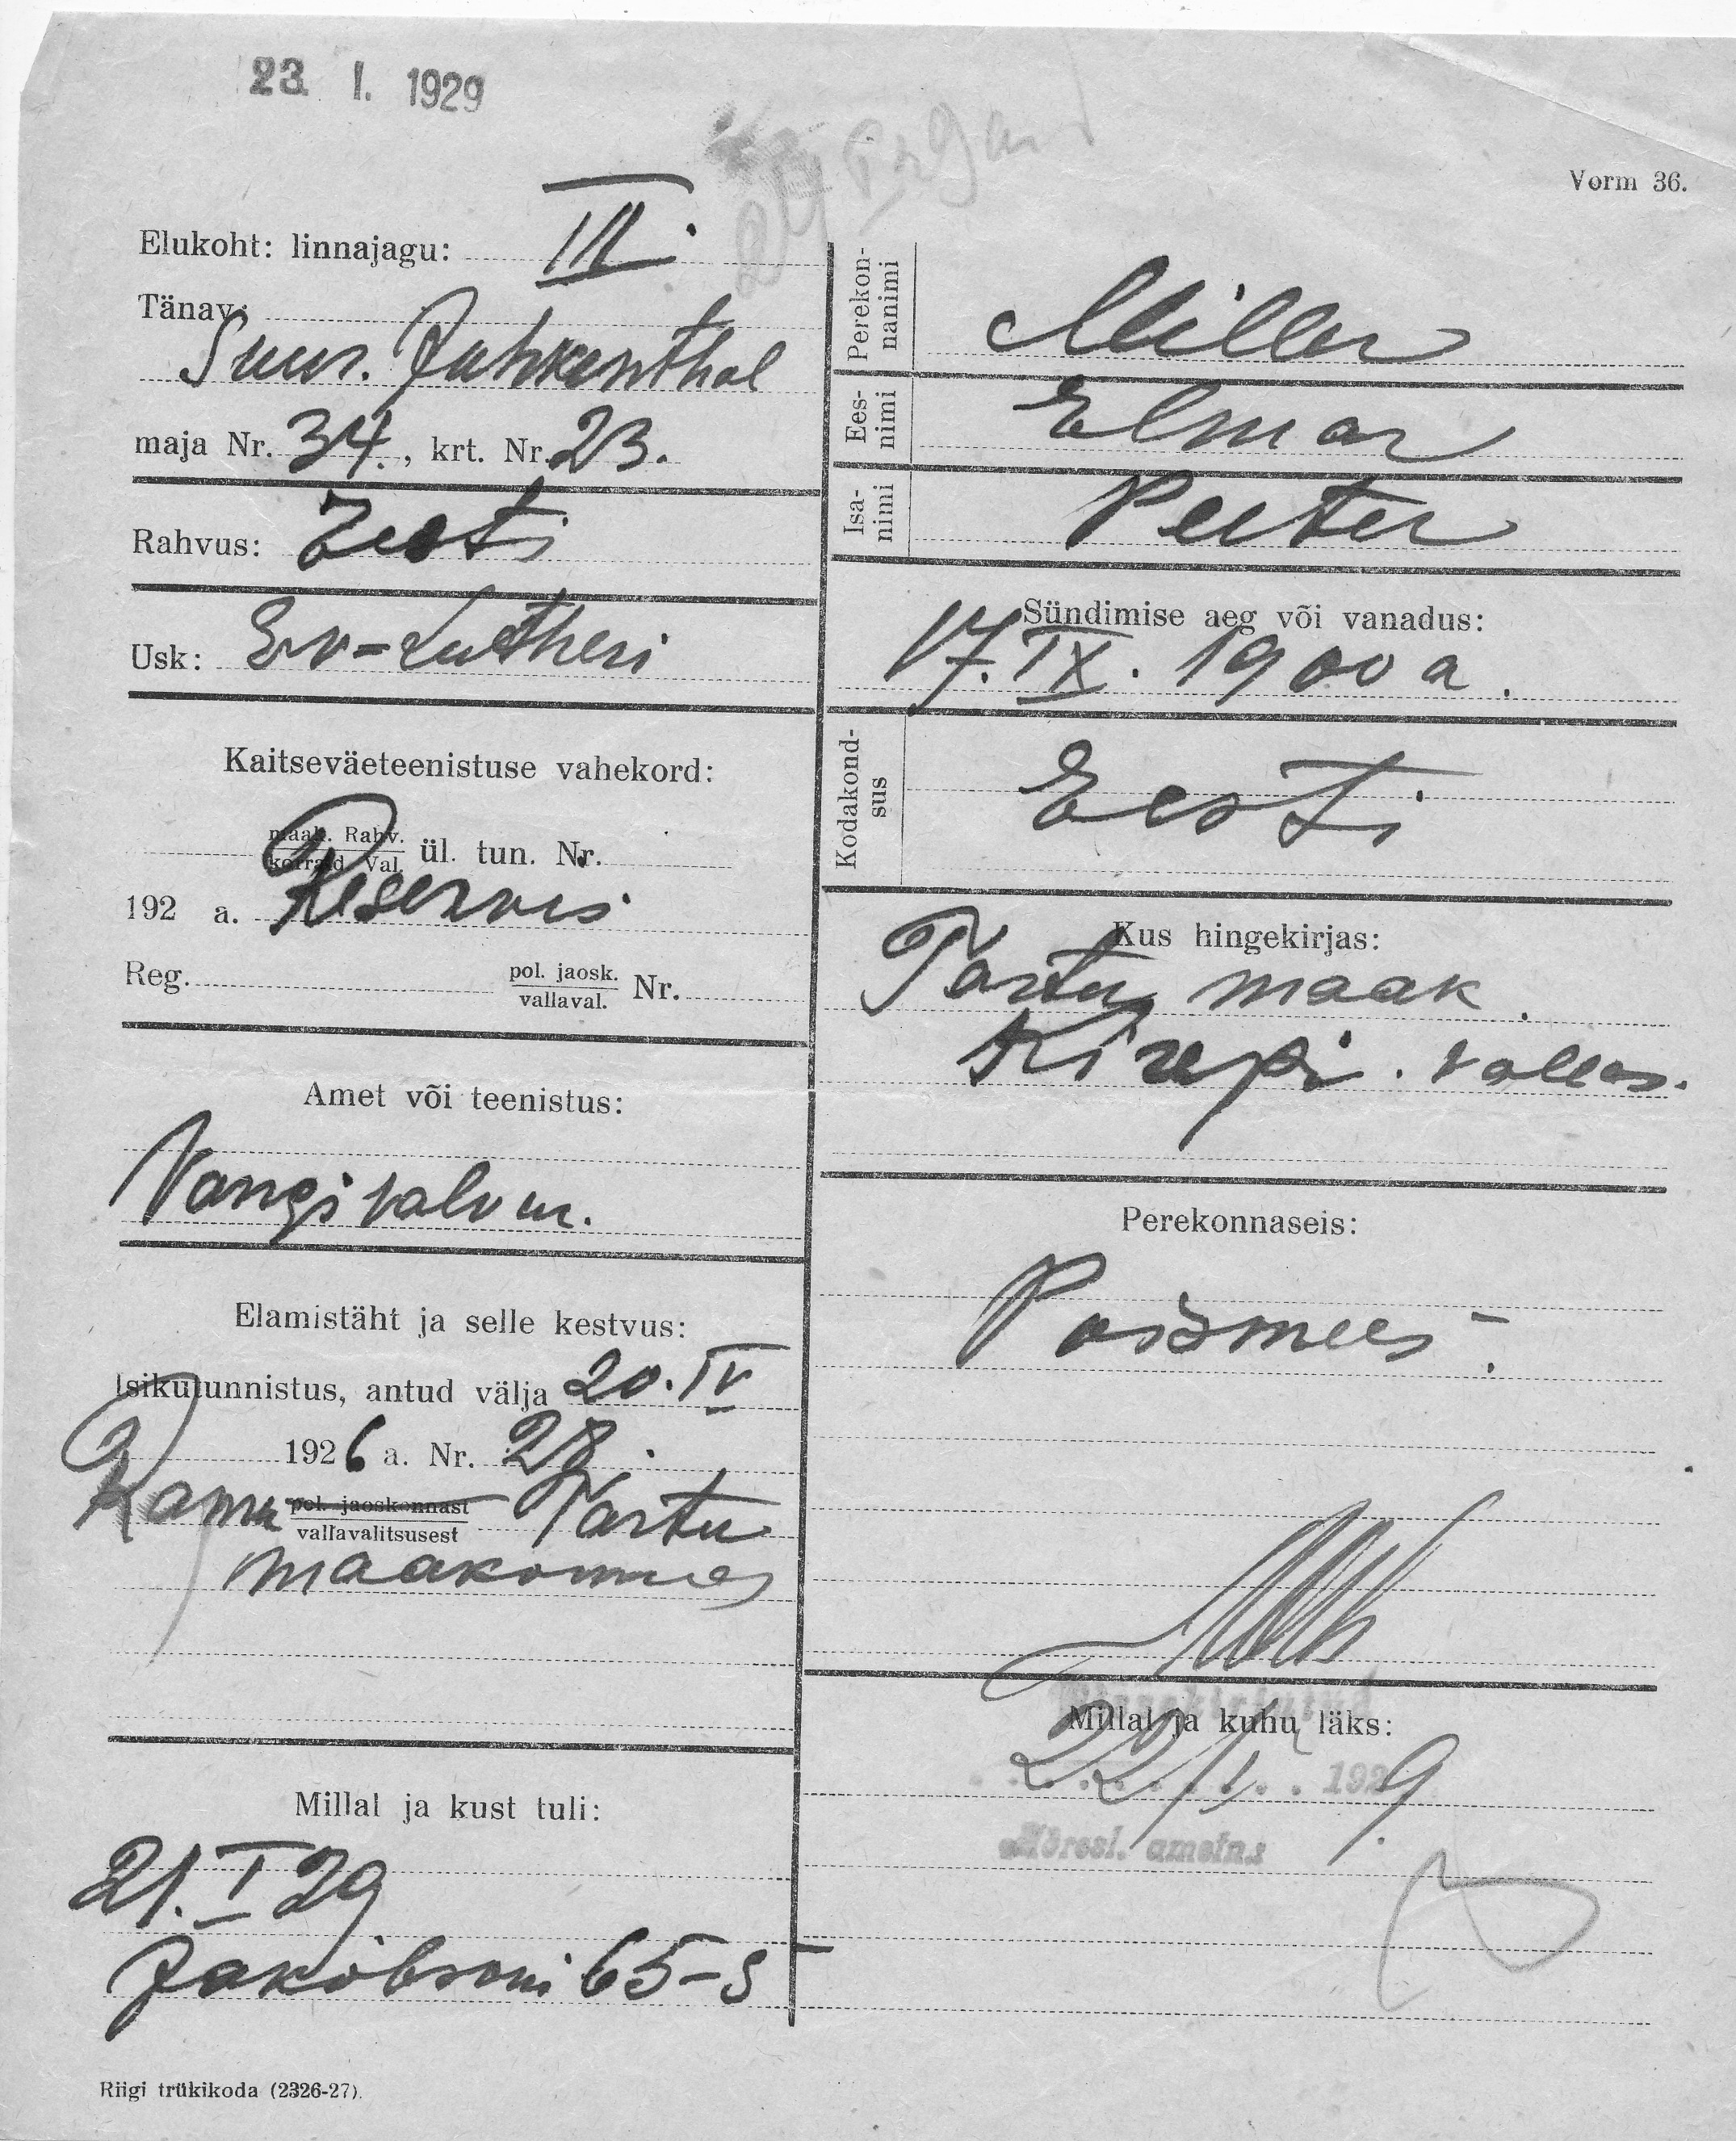 23. I. 1929
Vorm 36.
Elukoht: linnajagu: III.
Tänav:
Suur. Juhkenthal
maja Nr. 34., krt. Nr. 23.
Rahvus: Eesti
Usk: Ev=Lutheri
Kaitseväeteenistuse vahekord:
maak. Rahv.
korrald Val. ül. tun. Nr.
192 a. Reservis
Reg. pol. jaosk.
vallaval. Nr.
Amet või teenistus:
Vangivalvur.
Elamistäht ja selle kestvus:
Isikutunnistus, antud välja 20. IV
1926 a. Nr. 28.
pol. jaoskonnast
vallavalitsusest Tartu
maakonnas
Millal ja kust tuli:
21. I 29
Jakobsoni 65-5
Riigi trükikoda (2326-27).
Perekon-
nanimi
Miller
Ees-
nimi
Elmar
Isa-
nimi
Peeter
Sündimise aeg või vanadus:
17. IX. 1900 a.
Kodakond-
sus
Eesti
Kus hingekirjas:
Tartu maak.
Kirepi. vallas.
Perekonnaseis:
Poismees.
Millal ja kuhu läks:
22/I. 1929.